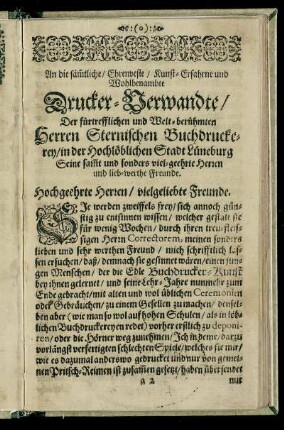 :(o):
An die sämtliche / Ehrenveste / Kunst-Erfahrne und
Wohlbenambte
Drucker-Verwandte /
Der fürtrefflichen und Welt-berühmten
Herren Sternischen Buchdrucke-
rey / in der Hochlöblichen Stadt Lüneburg
Seine sambt und sonders viel-geehrte Herren
und lieb-werthe Freunde.
Hochgeehrte Herren / vielgeliebte Freunde.
SIe werden zweiffels frey / sich annoch gün-
stig zu entsinnen wissen / welcher gestalt sie
für wenig Wochen / durch ihren treufleis-
sigen Herrn Correctorem, meinen sonders
lieben und sehr werthen Freund / mich schrifftlich
ersuchen / daß / demnach sie gesinnet wären / einen jun-
gen Menschen / der die Edle Buchdrucker-Kunst
bey ihnen gelernet / und seine Lehr-Jahre nunmehr zum
Ende gebracht / mit alten und wol üblichen Ceremonien
oder Gebräuchen / zu einem Gesellen zu machen / densel-
ben aber (wie man so wol auf hohen Schulen / als in löb-
lichen Buchdruckereyen redet) vorher erstlich zu deponi-
ren / oder die Hörner weg zunehmen / Ich in deme / darzu
vorlängst verfertigten schlechten Spiele / welches sie mir /
wie es dazumal anderswo gedrucket und nur von gemei-
nen Pritsch-Reimen ist zusammen gesetzt / haben übersendet
a 2 mit